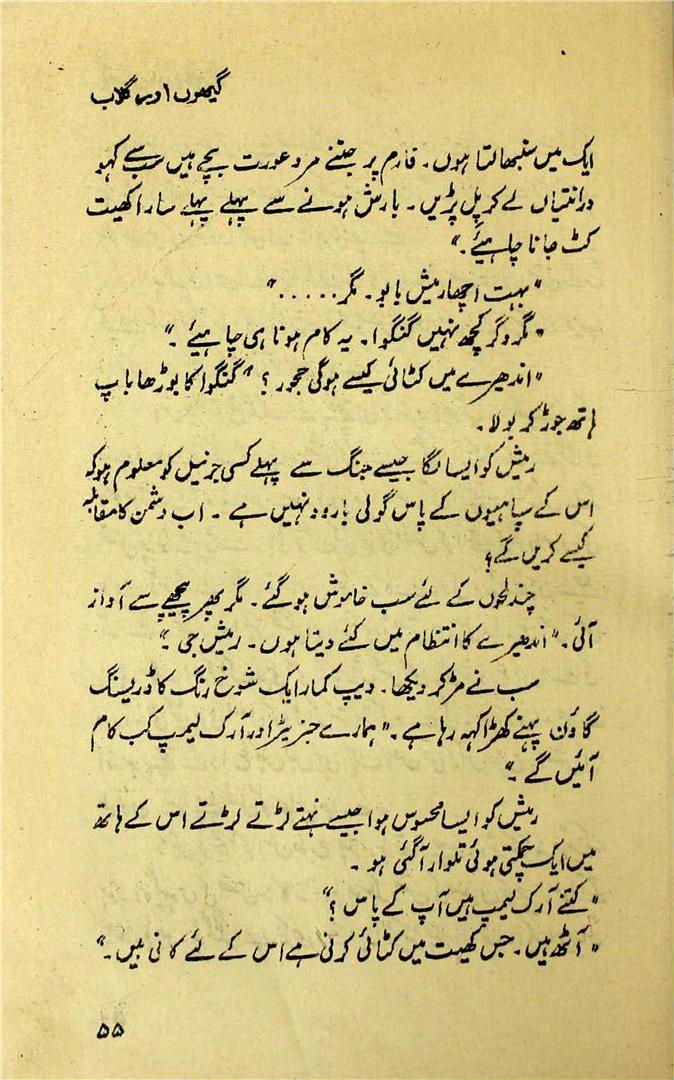 گیہوں اور گلاب
ایک میں سنبھالتا ہوں۔ فارم پر جتنے مرد عورت بچے ہیں سب سے کہو
درانتیاں لے کر پل پڑیں۔ بارش ہونے سے پہلے پہلے سارا کھیت
کٹ جانا چاہیئے۔"
"بہت اچھا رمیش بابو۔ مگر....."
"مگر وگر کچھ نہیں گنگوا۔ یہ کام ہونا ہی چاہیئے۔"
"اندھیرے میں کٹائی کیسے ہوگی حجور؟" گنگوا کا بوڑھا باپ
ہاتھ جوڑ کر بولا۔
رمیش کو ایسا لگا جیسے جنگ سے پہلے کسی جرنیل کو معلوم ہو کہ
اس کے سپاہیوں کے پاس گولی بارود نہیں ہے۔ اب دشمن کا مقابلہ
کیسے کریں گے؟
چند لمحوں کے لئے سب خاموش ہو گئے۔ مگر پھر پیچھے سے آواز
آئی۔ "اندھیرے کا انتظام میں کئے دیتا ہوں۔ رمیش جی۔"
سب نے مڑ کر دیکھا۔ دیپ کمار ایک شوخ رنگ کا ڈریسنگ
گاؤن پہنے کھڑا کہہ رہا ہے۔ "ہمارے جنریٹر اور آرک لیمپ کب کام
آئیں گے۔"
رمیش کو ایسا محسوس ہوا جیسے نہتے لڑتے لڑتے اس کے ہاتھ
میں ایک چمکتی ہوئی تلوار آگئی ہو۔
"کتنے آرک لیمپ ہیں آپ کے پاس؟"
"آٹھ ہیں۔ جس کھیت میں کٹائی کرنی ہے اس کے لئے کافی ہیں۔"
۵۵